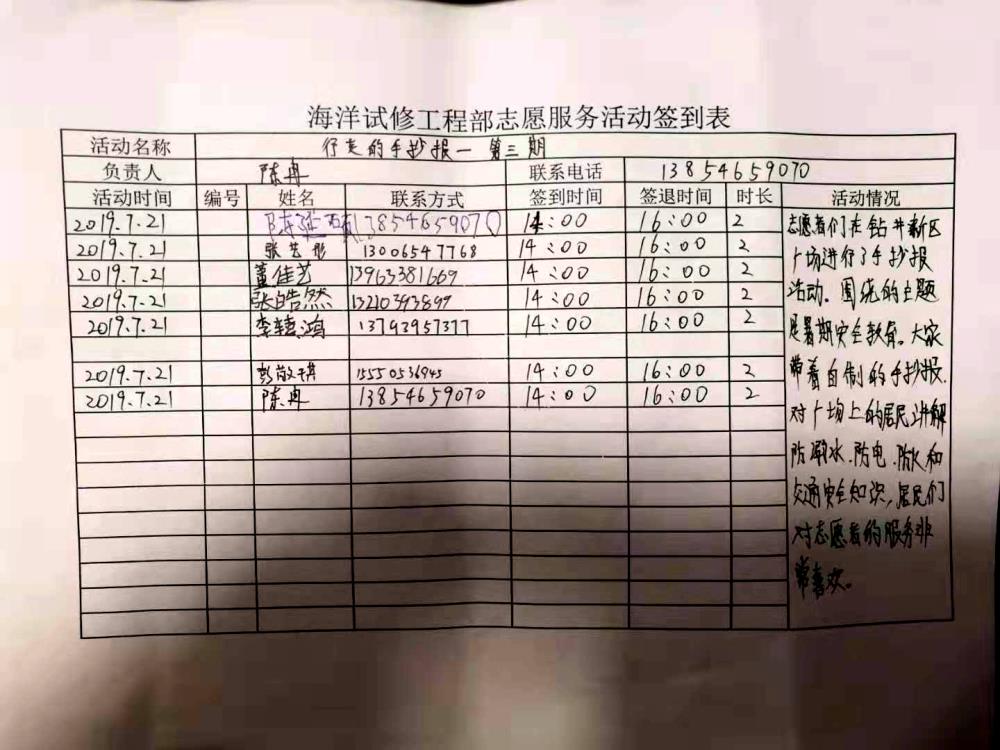 海洋试修工程部志愿服务活动签到表
活动名称 行走的手抄报一 第三期
负责人 陈冉 联系电话 13854659070
活动时间 编号 姓名 联系方式 签到时间 签退时间 时长 活动情况
2019.7.21 13854659070 14:00 16:00 2
2019.7.21 张艺彤 13006547768 14:00 16:00 2
2019.7.21 董佳艺 13963381669 14:00 16:00 2
2019.7.21 张皓然 14:00 16:00 2
2019.7.21 李 鸿 13793957377 14:00 16:00 2
2019.7.21 15550536945 14:00 16:00 2
2019.7.21 陈冉 13854659070 14:00 16:00 2
志愿者们在钻井新区
广场进行了手抄报
活动。围绕的主题
是暑期安全教育。大家
带着自制的手抄报,
对广场上的居民讲解
防溺水、防电、防火和
交通安全知识,居民们
对志愿者的服务非
常喜欢。